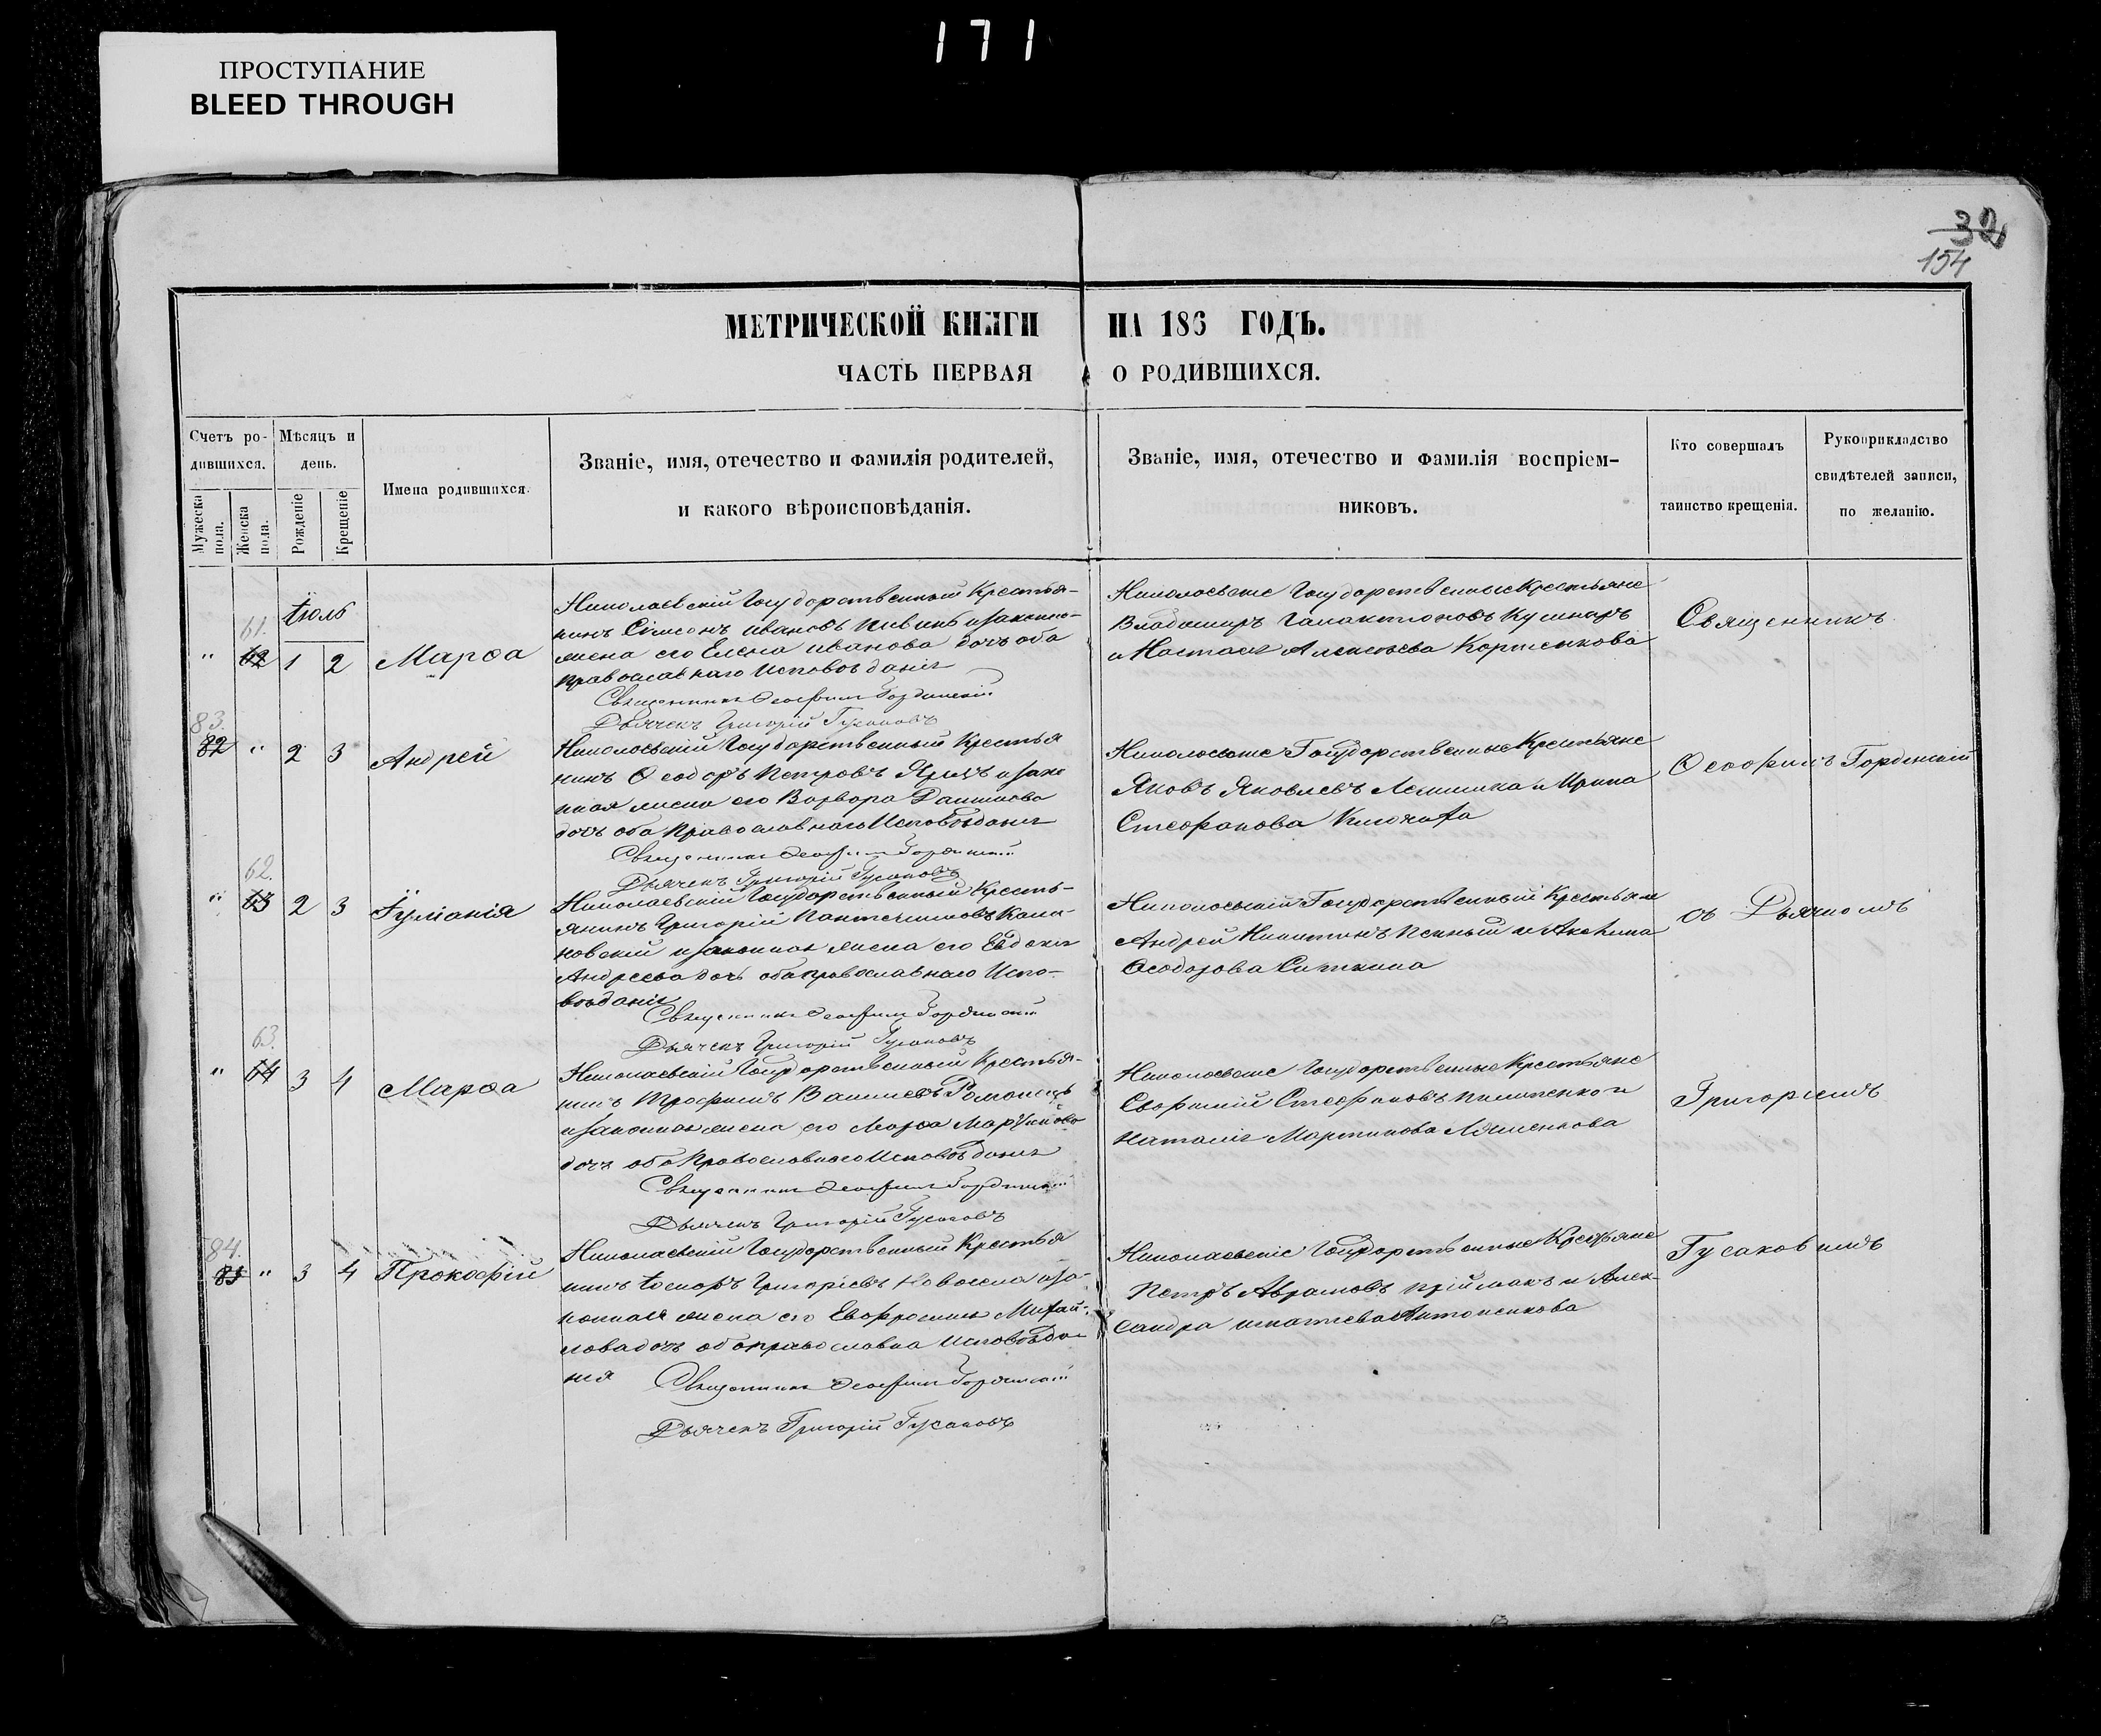 171
ПРОСТУПАНИЕ
BLEED THROUGH
32
154
МЕТРИЧЕСКОЙ КНИГИ НА 186 ГОДЪ.
ЧАСТЬ ПЕРВАЯ О РОДИВШИХСЯ.
Счетъ родившихся.
Мужеска пола.
Женска пола.
Мѣсяцъ и день.
Рожденіе
Крещеніе
Имена родившихся.
Званіе, имя, отечество и фамилія родителей,
и какого вѣроисповѣданія.
Званіе, имя, отечество и фамилія воспріем-
никовъ.
Кто совершалъ
таинство крещенія.
Рукоприкладство
свидѣтелей записи,
по желанію.
Іюль
61.
" 62 1 2 Марѳа
Николаевскій Государственный Крестья-
нинъ Симеонъ Ивановъ
жена его Елена Иванова дочь оба
православнаго Исповѣданія
Священникъ Ѳеофилъ Гординскій
Дьячекъ Григорій Гусаковъ
Николаевскіе Государственные Крестьяне
Владимиръ Галактіоновъ Кушниръ
и Настасія Алексѣева
Священникъ
83.
82 " 2 3 Андрей
Николаевскій Государственный Крестья
нинъ Ѳеодоръ Петровъ и зако
нная жена его Варвара Данилова
дочь оба Православнаго Исповѣданія
Священникъ Ѳеофилъ Гординскій
Дьячекъ Григорій Гусаковъ
Николаевскіе Государственные Крестьяне
Яковъ Яковлевъ и Ирина
Стефанова
Ѳеофилъ Гординскій
62.
" 63 2 3 Іуліанія
Николаевскій Государственный Кресть-
янинъ Григорій Пантелимовъ Кали-
новскій и законная жена его Евдокія
Андреева дочь оба православнаго Испо-
вѣданія
Священникъ Ѳеофилъ Гординскій
Дьячекъ Григорій Гусаковъ
Николаевскіе Государственный Крестьяне
Андрей Никитинъ и
Ѳеодорова Ситкина
съ Дьячкомъ
63.
" 64 3 4 Марѳа
Николаевскій Государственный Крестья-
нинъ Трофимъ Романецъ
и законная жена его Марѳа
дочь оба Православнаго Исповѣданія
Священникъ Ѳеофилъ Гординскій
Дьячекъ Григорій Гусаковъ
Николаевскіе Государственные Крестьяне
Стефановъ Пилипенко и
Наталія Мартинова
Григоріемъ
84.
83 " 3 4 Прокофій
Николаевскій Государственный Крестья
нинъ Григоріевъ и за-
конная жена его Евфросинія Михай-
лова дочь оба православна Исповѣда-
нія
Священникъ Ѳеофилъ Гординскій
Дьячекъ Григорій Гусаковъ
Николаевскіе Государственные Крестьяне
Петръ Аврамовъ Пріймакъ и Алек-
сандра Игнатьева Антоненкова
Гусаковымъ